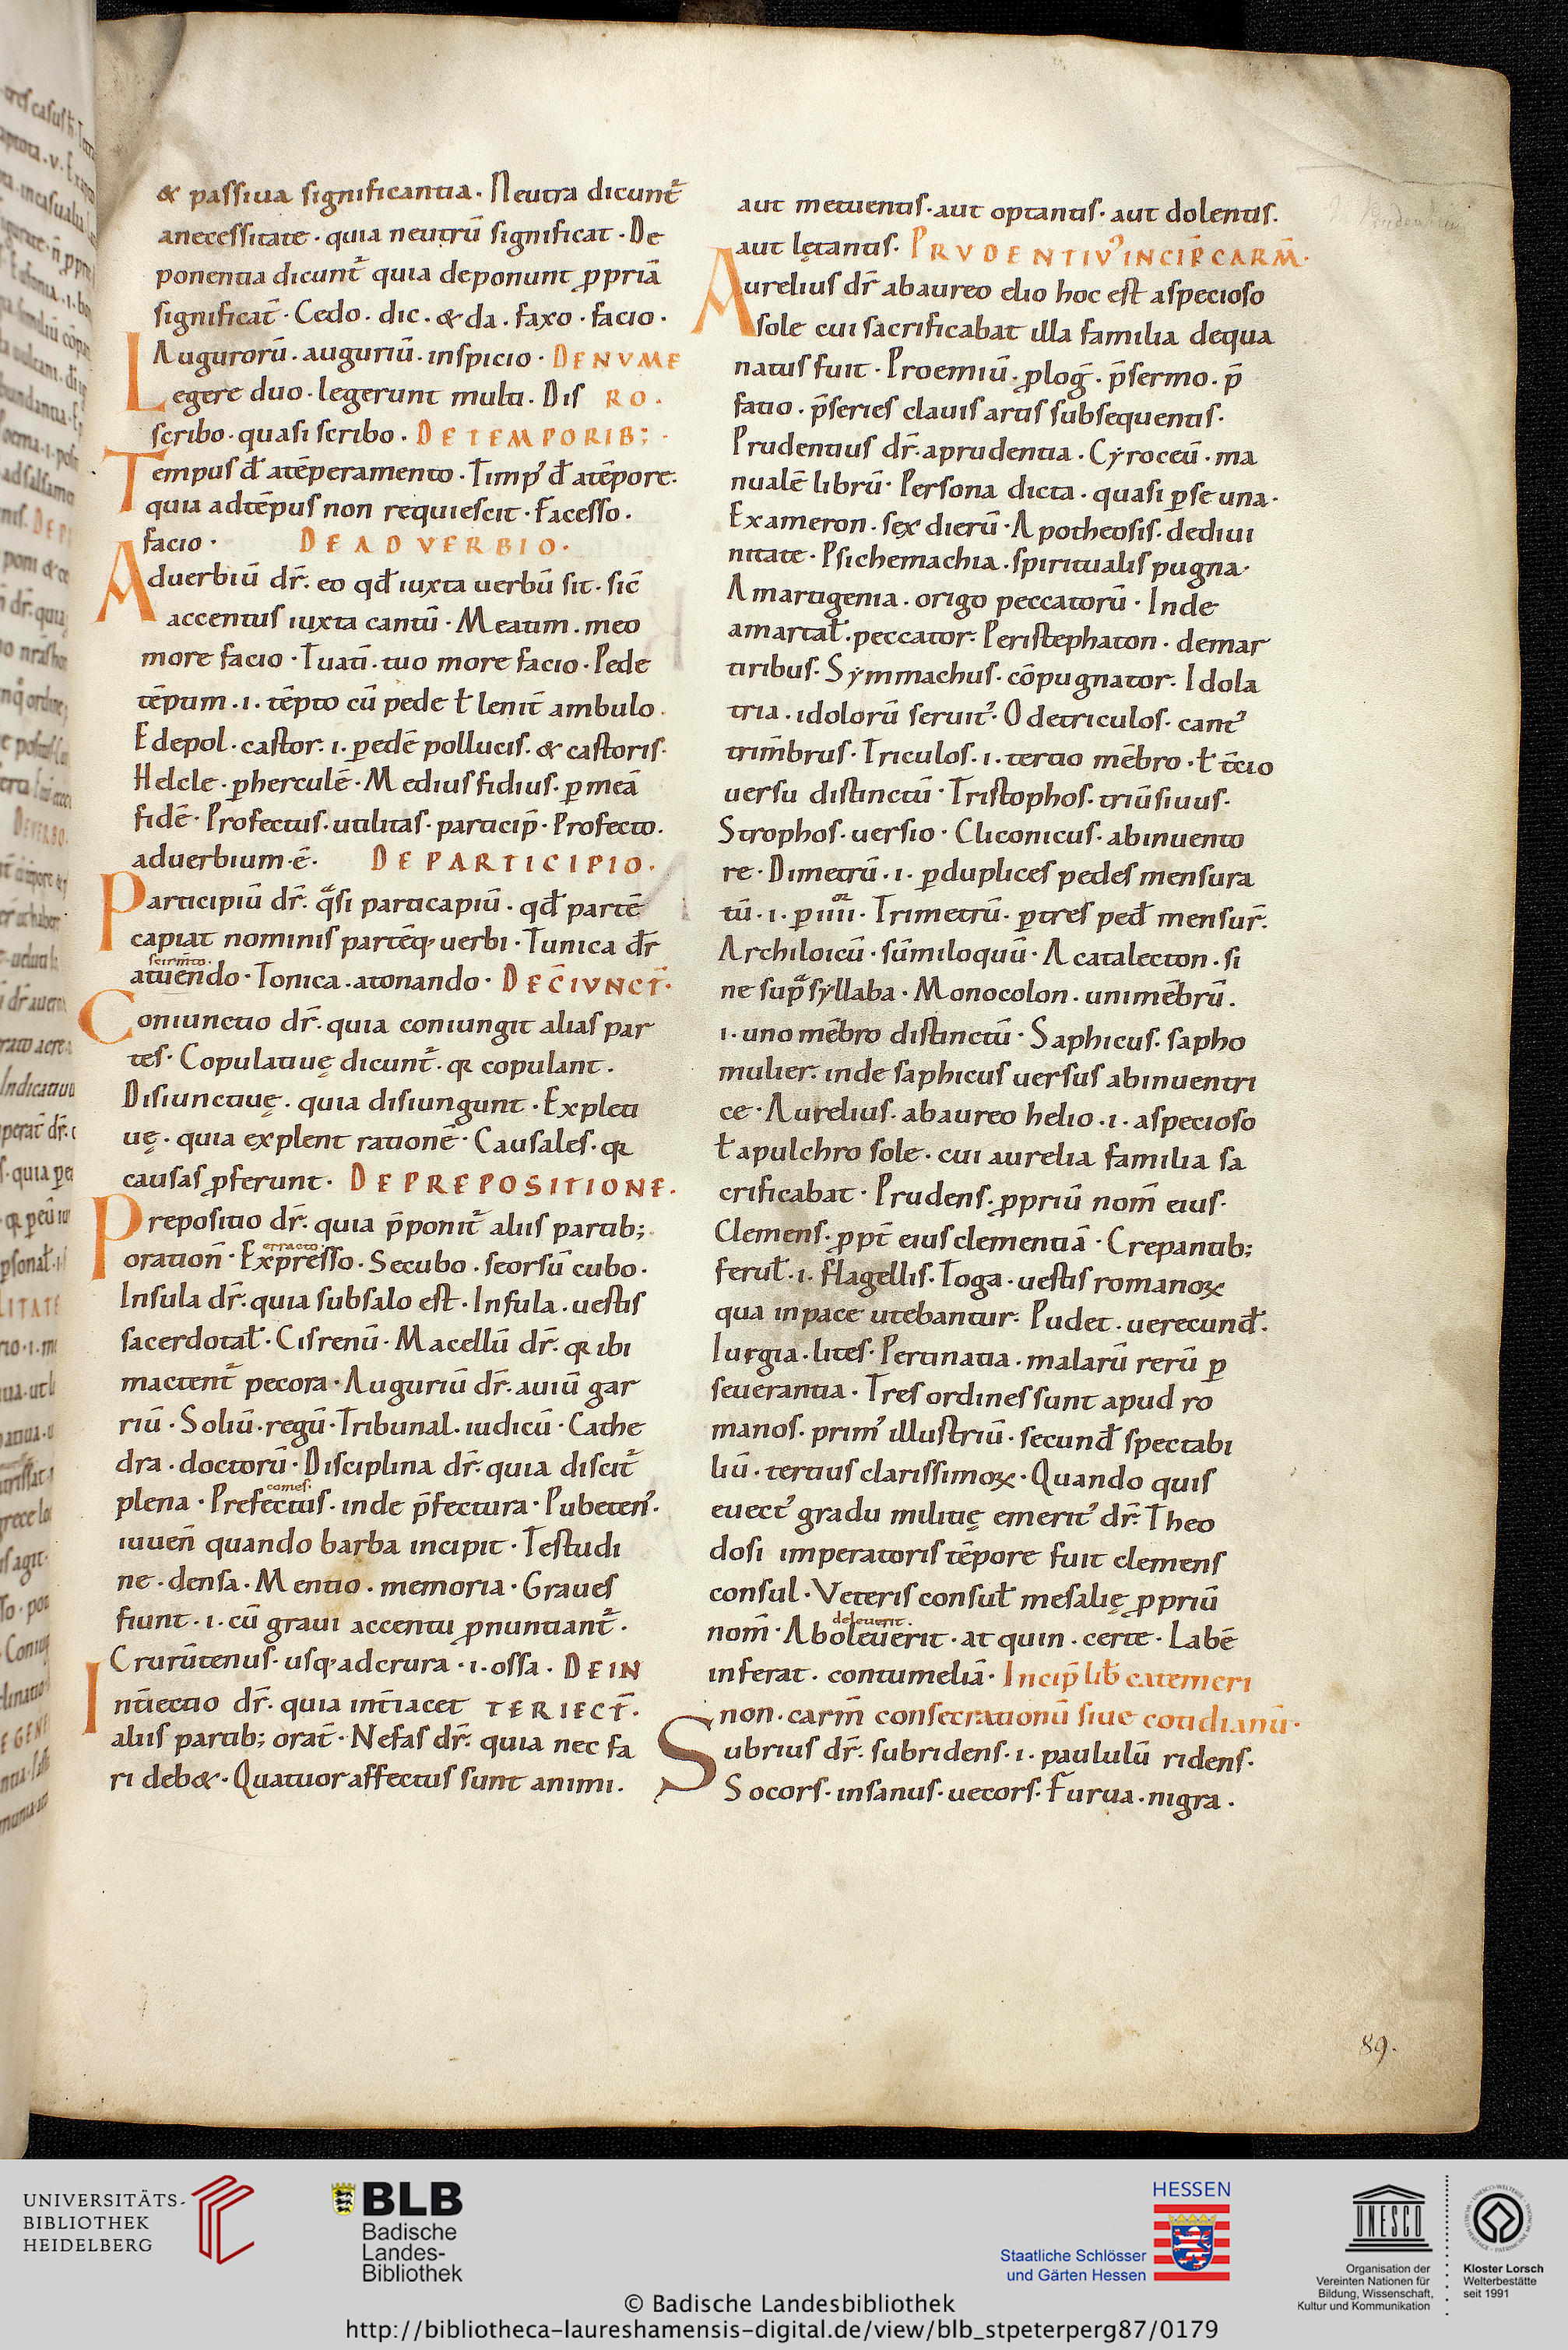 & passiua significantia. Neutra dicunt᷑
anecessitate. quia neutrū significat. De
ponentia dicunt᷑ quia deponunt ꝓpriā
significat̄. Cedo. dic. & da. faxo. facio.
Augurorū. auguriū. inspicio. DENVME
Legere duo. legerunt multi. Dis RO.
scribo. quasi scribo. DETEMPORIB;
Tempus dr̄ atēperamento. Timp᾽ dr̄ atēpore.
quia adtēpus non requiescit. Facesso.
facio. DEADVERBIO.
Aduerbiū dr̄. eo qd̄ iuxta uerbū sit. sic̄
accentus iuxta cantū. Meatim. meo
more facio. Tuati̅. tuo more facio. Pede
tēptim .i. tēpto cū pede ł lenit̄ ambulo.
Edepol. castor. i. ꝑedē pollucis. & castoris.
Helcle. ꝑherculē. Medius fidius. ꝑ meā
fidē. Profectus. utilitas. particip̄. Profecto.
aduerbium. ē. DEPARTICIPIO.
Participiū dr̄. qͣsi particapiū. qd̄ partē
capiat nominis partēq; uerbi. Tunica dr̄
atuendo. Tonica. atonando. DEC̄IVNCT̄.
Coniunctio dr̄. quia coniungit alias par
tes. Copulatiuę dicunt᷑. qꝛ copulant.
Disiunctiuę. quia disiungunt. Expleti
uę. quia explent rationē. Causales. qꝛ
causas ꝓferunt. DEPREPOSITIONE.
Prepositio dr̄. quia p̄ponit᷑ aliis partib;
oration̄. Expresso. Secubo. seorsū cubo.
Insula dr̄. quia subsalo est. Infula. uestis
sacerdotał. Cisrenū. Macellū dr̄. qꝛ ibi
mactent᷑ pecora. Auguriū dr̄. auiū gar
riū. Soliū. regū. Tribunal. iudicū. Cathe
dra. doctorū. Disciplina dr̄. quia discit᷑
comes.
plena. Prefectus. inde p̄fectura. Pubeten᾽.
iuuen̄ quando barba incipit. Testudi
ne. densa. Mentio. memoria. Graues
fiunt. i. cū graui accentu ꝓnuntiant᷑.
Crurūtenus. usq; adcrura. i. ossa. DEIN
Int̄iectio dr̄. quia int̄iacet TERIECT̄.
aliis partib; orat̄. Nefas dr̄. quia nec fa
ri deb&. Quatuor affectus sunt animi.
aut metuentis. aut optantis. aut dolentis.
aut lętantis. PRVDENTIV᾽ INCIP̄ CARM̄.
Aurelius dr̄ abaureo elio hoc est aspecioso
sole cui sacrificabat illa familia dequa
natus fuit. Proemiū. ꝓloḡ. p̄sermo. p̄
fatio. p̄series clauis artis subsequentis.
Prudentius dr̄. aprudentia. Cyroceū. ma
nualē librū. Persona dicta. quasi ꝑse una.
Exameron. sex dierū. Apotheosis. dediui
nitate. Psichemachia. spiritualis pugna.
Amartigenia. origo peccatorū. Inde
amartał. peccator. Peristephaton. demar
tiribus. Symmachus. cōpugnator. Idola
tria. idolorū seruit᾽. Odetriculos. cant᾽
trim̄brus. Triculos. i. tertio mēbro. ł t̄cio
uersu distinctū. Tristophos. triūsiuus.
Strophos. uersio. Cliconicus. abinuento
re. Dimetrū. i. ꝑduplices pedes mensura
tū. i. ꝑ iiii. Trimetrū. ꝑtres ped̄ mensur̄.
Archiloicū. sūmiloquū. Acatalecton. si
ne supͣ syllaba. Monocolon. unimēbrū.
i. uno mēbro distinctū. Saphicus. sapho
mulier. inde saphicus uersus abinuentri
ce. Aurelius. abaureo helio. i. aspecioso
ł apulchro sole. cui aurelia familia sa
crificabat. Prudens. ꝓpriū nom̄ eius.
Clemens. ꝓpt̄ eius clementiā. Crepantib;
feruł. i. flagellis. Toga. uestis romanoꝝ
qua inpace utebantur. Pudet. uerecund̄.
Iurgia. lites. Pertinatia. malarū rerū ꝑ
seuerantia. Tres ordines sunt apud ro
manos. prim᾽ illustriū. secund̄ spectabi
liū. tertius clarissimoꝝ. Quando quis
euect᾽ gradu militię emerit᾽ dr̄. Theo
dosi imperatoris tēpore fuit clemens
consul. Veteris consuł mesalię ꝓpriū
deleuerit.
nom̄. Aboleuerit. at quin. certe. Labē
inferat. contumeliā. Incip̄ lib̄ catemeri
non. carm̄ consecrationū siue cotidianū.
Subrius dr̄. subridens. i. paululū ridens.
Socors. insanus. uecors. Furua. nigra.
89.
UNIVERSITÄTS-
BIBLIOTHEK
HEIDELBERG
BLB
Badische
Landes-
Bibliothek
HESSEN
Staatliche Schlösser
und Gärten Hessen
UNESCO
Organisation der
Vereinten Nationen für
Bildung, Wissenschaft,
Kultur und Kommunikation
Kloster Lorsch
Welterbestätte
seit 1991
© Badische Landesbibliothek
http://bibliotheca-laureshamensis-digital.de/view/blb_stpeterperg87/0179